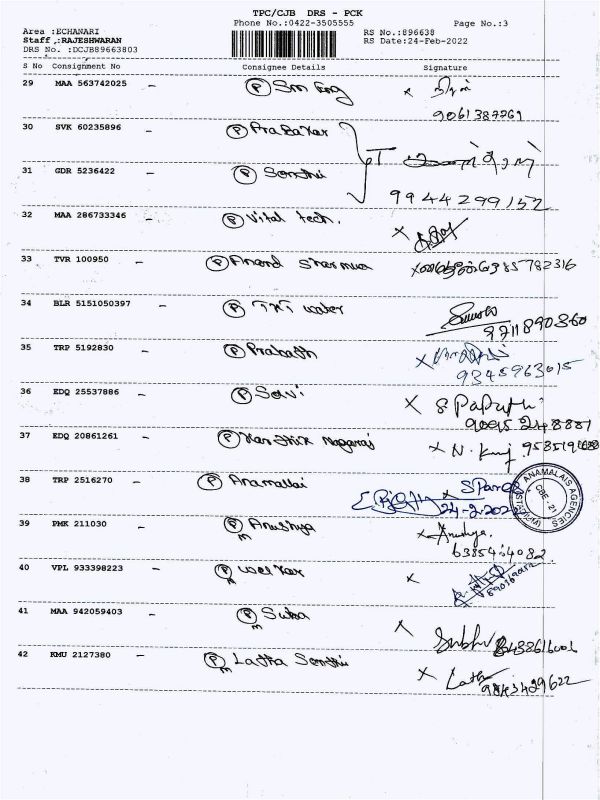 TPC/CJB DRS - PCK
Phone No.:0422-3505555
Page No.:3
Area :ECHANARI
Staff :RAJESHWARAN
DRS No. :DCJB89663803
RS No.:896638
RS Date:24-Feb-2022
S No Consignment No Consignee Details Signature
29 MAA 563742025 - P
9061387769
30 SVK 60235896 - P Prabakar
31 GDR 5236422 - P Senthi
9944299152
32 MAA 286733346 - P Vital tech.
33 TVR 100950 - P Anand Sharmua
6385782316
34 BLR 5151050397 - P TNT water
9711890360
35 TRP 5192830 - P Prabath
9345963015
36 EDQ 25537886 - P Savi
37 EDQ 20861261 - P Karthik Nagaraj
N.
38 TRP 2516270 - P Anamallai
24-2-2022
ANAMALAIS AGENCIES
CBE - 21
39 PMK 211030 - P Anushya
m
Anushya.
40 VPL 933398223 - P
m
41 MAA 942059403 - P Suba
m
42 KMU 2127380 - P Latha Senthi
m
9843429622